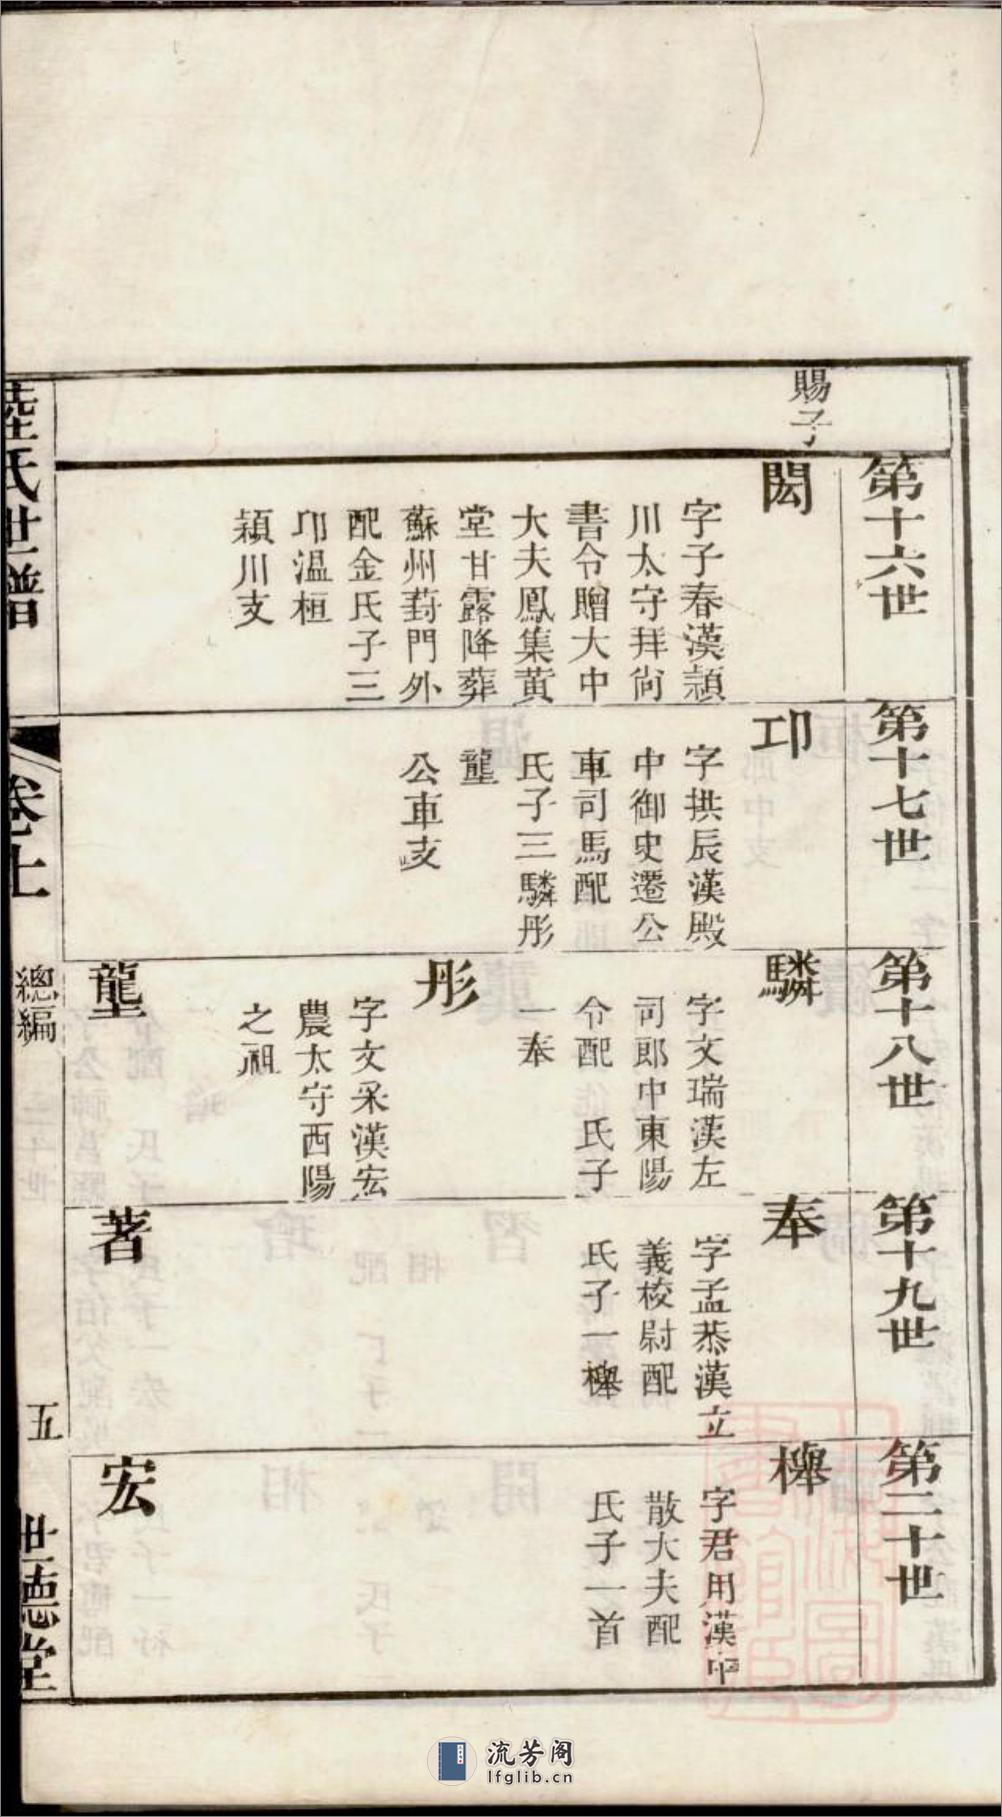 賜子
第十六世
閎
字子春漢潁
川太守拜尙
書令贈大中
大夫鳳集黃
堂甘露降葬
蘇州葑門外
配金氏子三
邛溫桓
潁川支
第十七世
邛
字拱辰漢殿
中御史遷公
車司馬配
氏子三驎彤
壟
公車支
第十八世
驎
字文瑞漢左
司郎中東陽
令配　氏子
一奉
彤
字文采漢宏
農太守西陽
之祖
壟
第十九世
奉
字孟恭漢立
義校尉配
氏子一櫸
著
第二十世
櫸
字君用漢中
散大夫配
氏子一首
宏
陸氏世譜
卷上
總編
五
世德堂
流芳阁
lfglib.cn